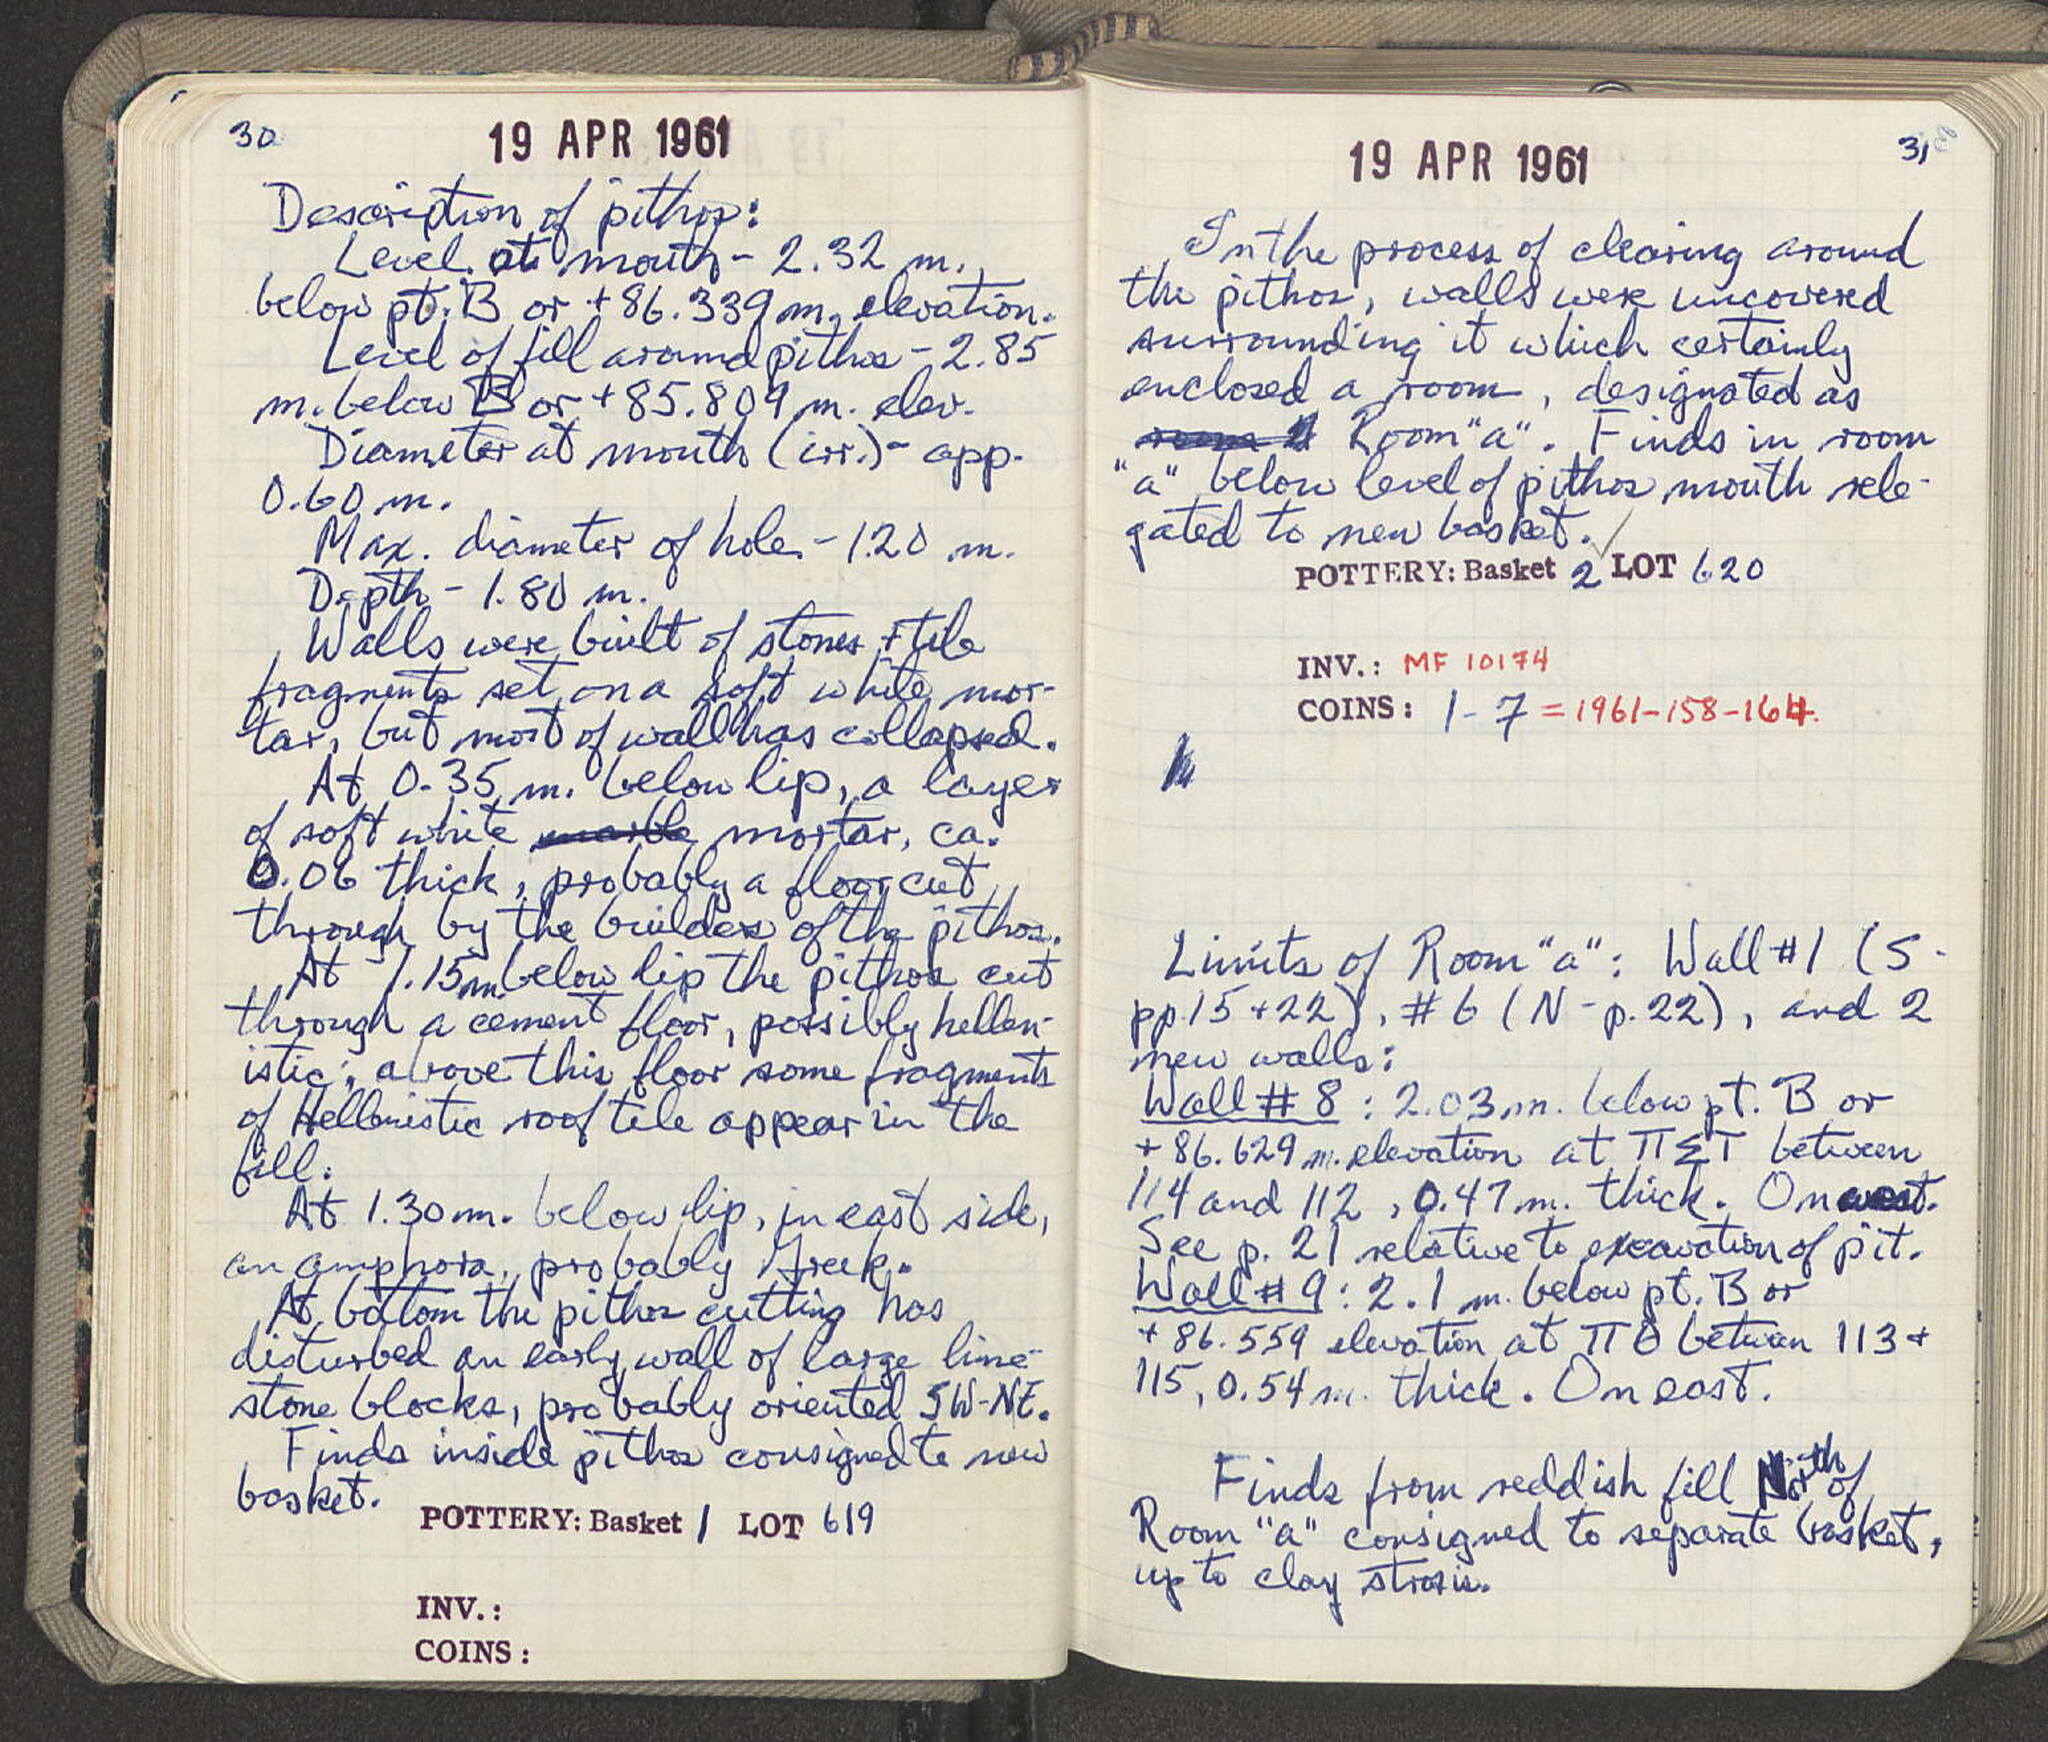 30
19 APR 1961
Description of pithos:
Level at mouth - 2.32 m.
below pt. B or +86.339 m. elevation.
Level of fill around pithos - 2.85
m. below B or +85.809 m. elev.
Diameter at mouth (irr.) - app.
0.60 m.
Max. diameter of hole - 1.20 m.
Depth - 1.80 m.
Walls were built of stones + tile
fragments set on a soft white mor-
tar, but most of wall has collapsed.
At 0.35 m. below lip, a layer
of soft white marble mortar, ca.
0.06 thick, probably a floor cut
through by the builders of the pithos.
At 1.15 m. below lip the pithos cut
through a cement floor, possibly hellen-
istic; above this floor some fragments
of Hellenistic roof tile appear in the
fill.
At 1.30 m. below lip, in east side,
an amphora, probably Greek.
At bottom the pithos cutting has
disturbed an early wall of large lime-
stone blocks, probably oriented SW-NE.
Finds inside pithos consigned to new
basket.
POTTERY: Basket 1 LOT 619
INV.:
COINS:
19 APR 1961
31
In the process of clearing around
the pithos, walls were uncovered
surrounding it which certainly
enclosed a room, designated as
room Room "a". Finds in room
"a" below level of pithos mouth rele-
gated to new basket.
POTTERY: Basket 2 LOT 620
INV.: MF 10174
COINS: 1-7 = 1961-158-164.
Limits of Room "a": Wall #1 (S -
pp. 15 + 22), #6 (N - p. 22), and 2
new walls:
Wall #8: 2.03 m. below pt. B or
+86.629 m. elevation at ΠΣΤ between
114 and 112, 0.47 m. thick. On west.
See p. 21 relative to excavation of pit.
Wall #9: 2.1 m. below pt. B or
+86.559 elevation at ΠΟ between 113 +
115, 0.54 m. thick. On east.
Finds from reddish fill North of
Room "a" consigned to separate basket,
up to clay strosis.